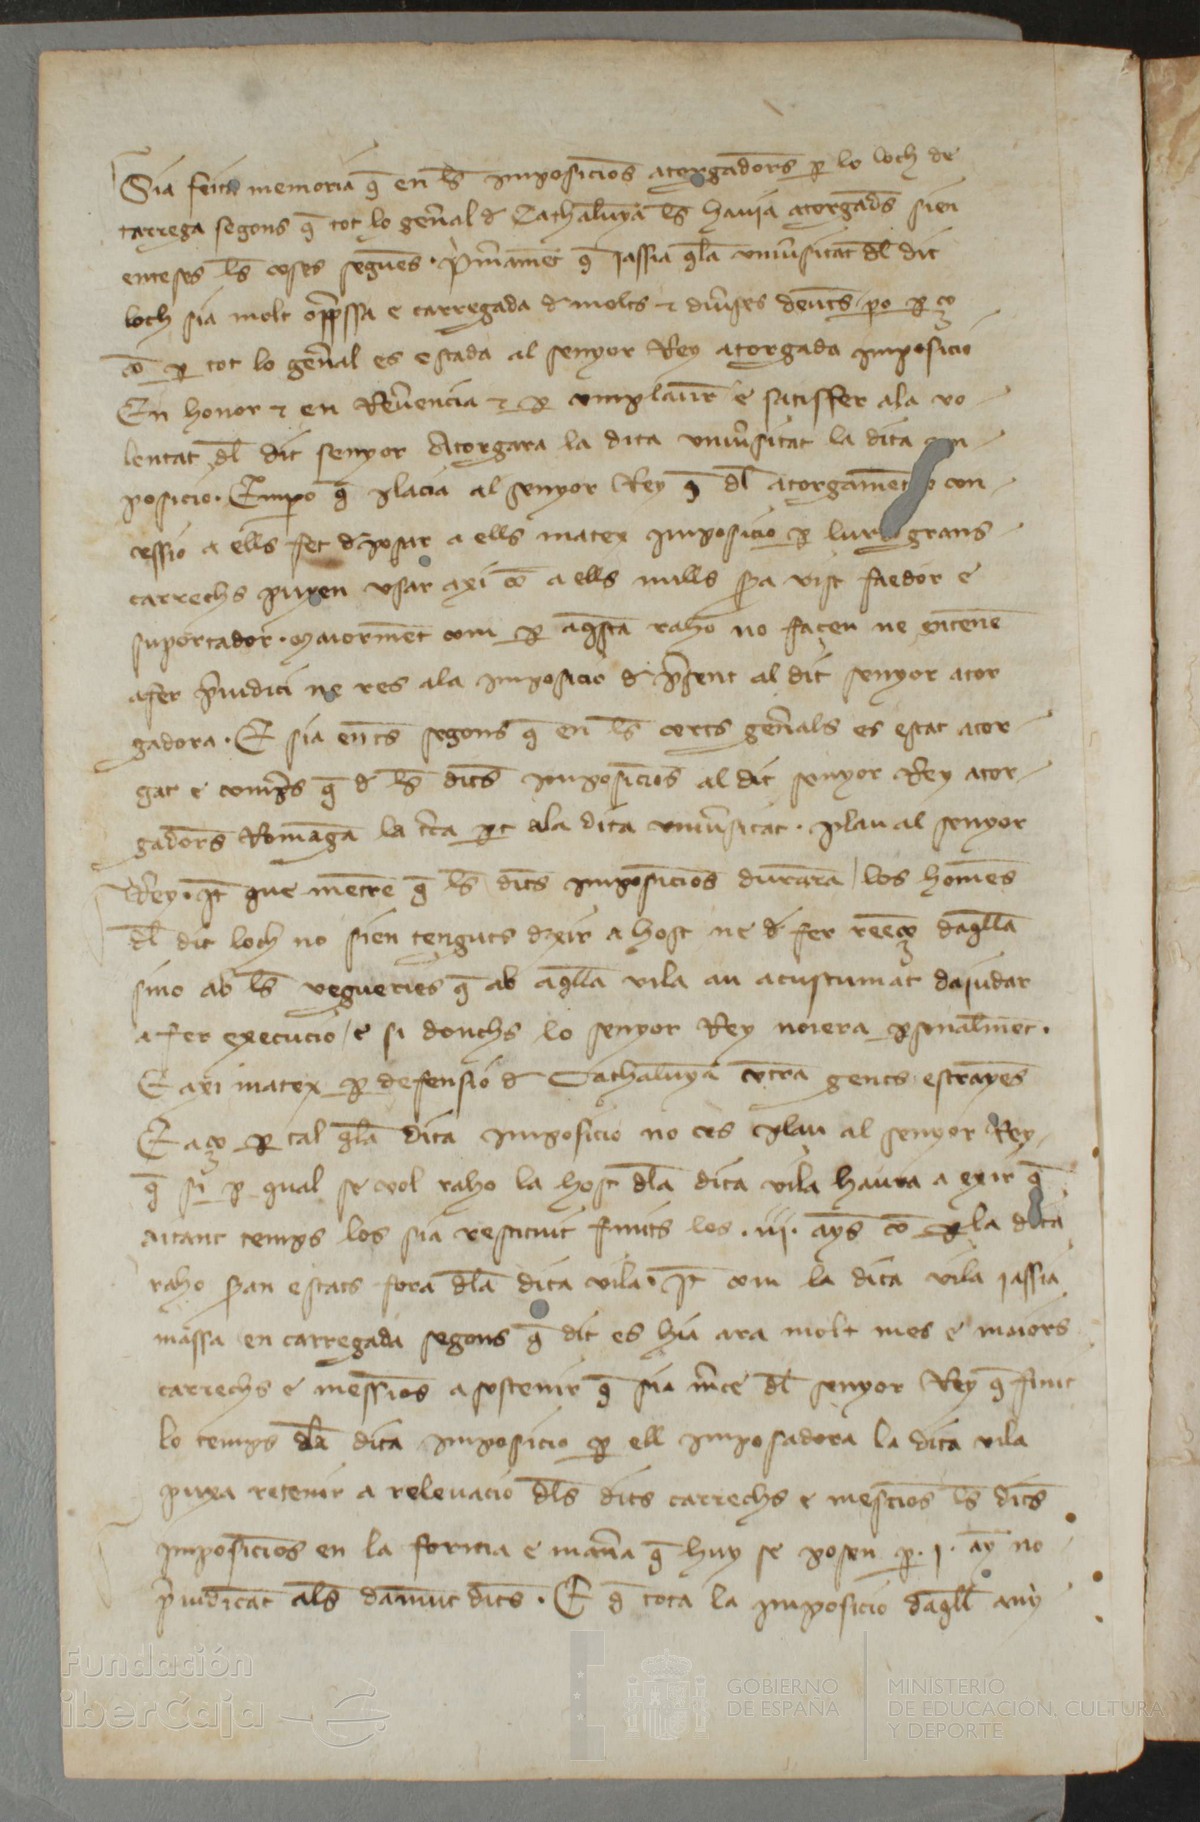 Sia feita memoria q̄ en l̄s imposicions atorgadors ꝑ lo loch de
tarrega segons q̄ tot lo gen̄al d Cathalunya l̄s havia atorgads sien
enteses l̄s coses seguens · p̄mamēt q̄ jassia q̄la univ̄sitat dl̄ dit
loch sia molt op̄ssa e carregada d molts ⁊ div̄ses deuts po ꝑ ço
cō ꝑ tot lo gen̄al es estada al senyor Rey atorgada imposicio
En honor ⁊ en Rev̄encia ⁊ ꝑ complaur̄ e satisffer ala vo-
lentat dl̄ dit senyor Atorgara la dita univ̄sitat la dita im-
posicio · Emꝑo q̄ placia al senyor Rey q̄ dl̄ atorgamēt o con-
cessio a ells fet d posar a ells matex imposicio ꝑ lurs grans
carrechs puxen usar axi cō a ells mills s̄a vist faedor e
suportador · maiormēt com ꝑ aq̄sta raho no façen ne entenē
afer p̄iudici ne res ala imposicio d p̄sent al dit senyor ator
gadora · E sia ent̄s segons q̄ en l̄s corts gen̄als es estat ator-
gat e comp̄s q̄ d l̄s dit̄s imposicions al dit senyor Rey ator-
gadors Romāga la t̄ca ꝑt ala dita univ̄sitat · plau al senyor
Rey · It̄ que mentre q̄ l̄s dit̄s imposicions durara los homēs
dl̄ dit loch no sien tenguts dexir a host ne d fer reēço daq̄lla
sino ab l̄s vegueries q̄ ab aq̄lla vila an acustumat daiudar
a fer execucio / e si donchs lo senyor Rey noiera ꝑsonalmēt ·
E axi matex ꝑ defensio d Cathalunya cōtra gents estrayēs
E aço ꝑ tal q̄la dita imposicio no ces plau al senyor Rey
q̄ si ꝑ qual se vol raho la host dl̄a dita vila haura a exir q̄
aitant temps los sia restituit finits los · iij · anys cō ꝑ la dita
raho s̄an estats fora dl̄a dita vila · It̄ com la dita vila jassia
massa en carregada segons q̄ dit es hia ara molt mes e maiors
carrechs e messions a sostenir q̄ sia m̄ce dl̄ senyor Rey q̄ finit
lo temps dl̄a dita imposicio ꝑ ell imposadora la dita vila
puxa retenir a relevacio dl̄s dits carrechs e mescions l̄s dit̄s
imposicions en la forma e man̄a q̄ huy se posen ꝑ · j · ay no
p̄iudicāt als damūt dits · E q̄ tota la imposicio daq̄ll any
Fundación
iberCaja
GOBIERNO
DE ESPAÑA
MINISTERIO
DE EDUCACIÓN, CULTURA
Y DEPORTE